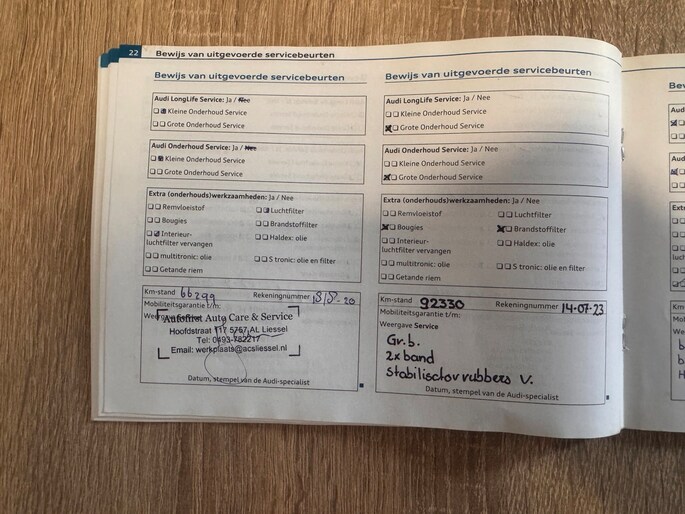 22 Bewijs van uitgevoerde servicebeurten
Bewijs van uitgevoerde servicebeurten
Audi LongLife Service: Ja / Nee
Kleine Onderhoud Service
Grote Onderhoud Service
Audi Onderhoud Service: Ja / Nee
Kleine Onderhoud Service
Grote Onderhoud Service
Extra (onderhouds)werkzaamheden: Ja / Nee
Remvloeistof Luchtfilter
Bougies Brandstoffilter
Interieur- Haldex: olie
luchtfilter vervangen
multitronic: olie S tronic: olie en filter
Getande riem
Km-stand 66299 Rekeningnummer
Mobiliteitsgarantie t/m:
Weergave Service
Autofirst Auto Care & Service
Hoofdstraat 117 5757 AL Liessel
Tel: 0493-782217
Email: werkplaats@acsliessel.nl
Datum, stempel van de Audi-specialist
Bewijs van uitgevoerde servicebeurten
Audi LongLife Service: Ja / Nee
Kleine Onderhoud Service
Grote Onderhoud Service
Audi Onderhoud Service: Ja / Nee
Kleine Onderhoud Service
Grote Onderhoud Service
Extra (onderhouds)werkzaamheden: Ja / Nee
Remvloeistof Luchtfilter
Bougies Brandstoffilter
Interieur- Haldex: olie
luchtfilter vervangen
multitronic: olie S tronic: olie en filter
Getande riem
Km-stand 92330 Rekeningnummer 14-07-23
Mobiliteitsgarantie t/m:
Weergave Service
Gr.b.
2x band
Stabilisator rubbers V.
Datum, stempel van de Audi-specialist